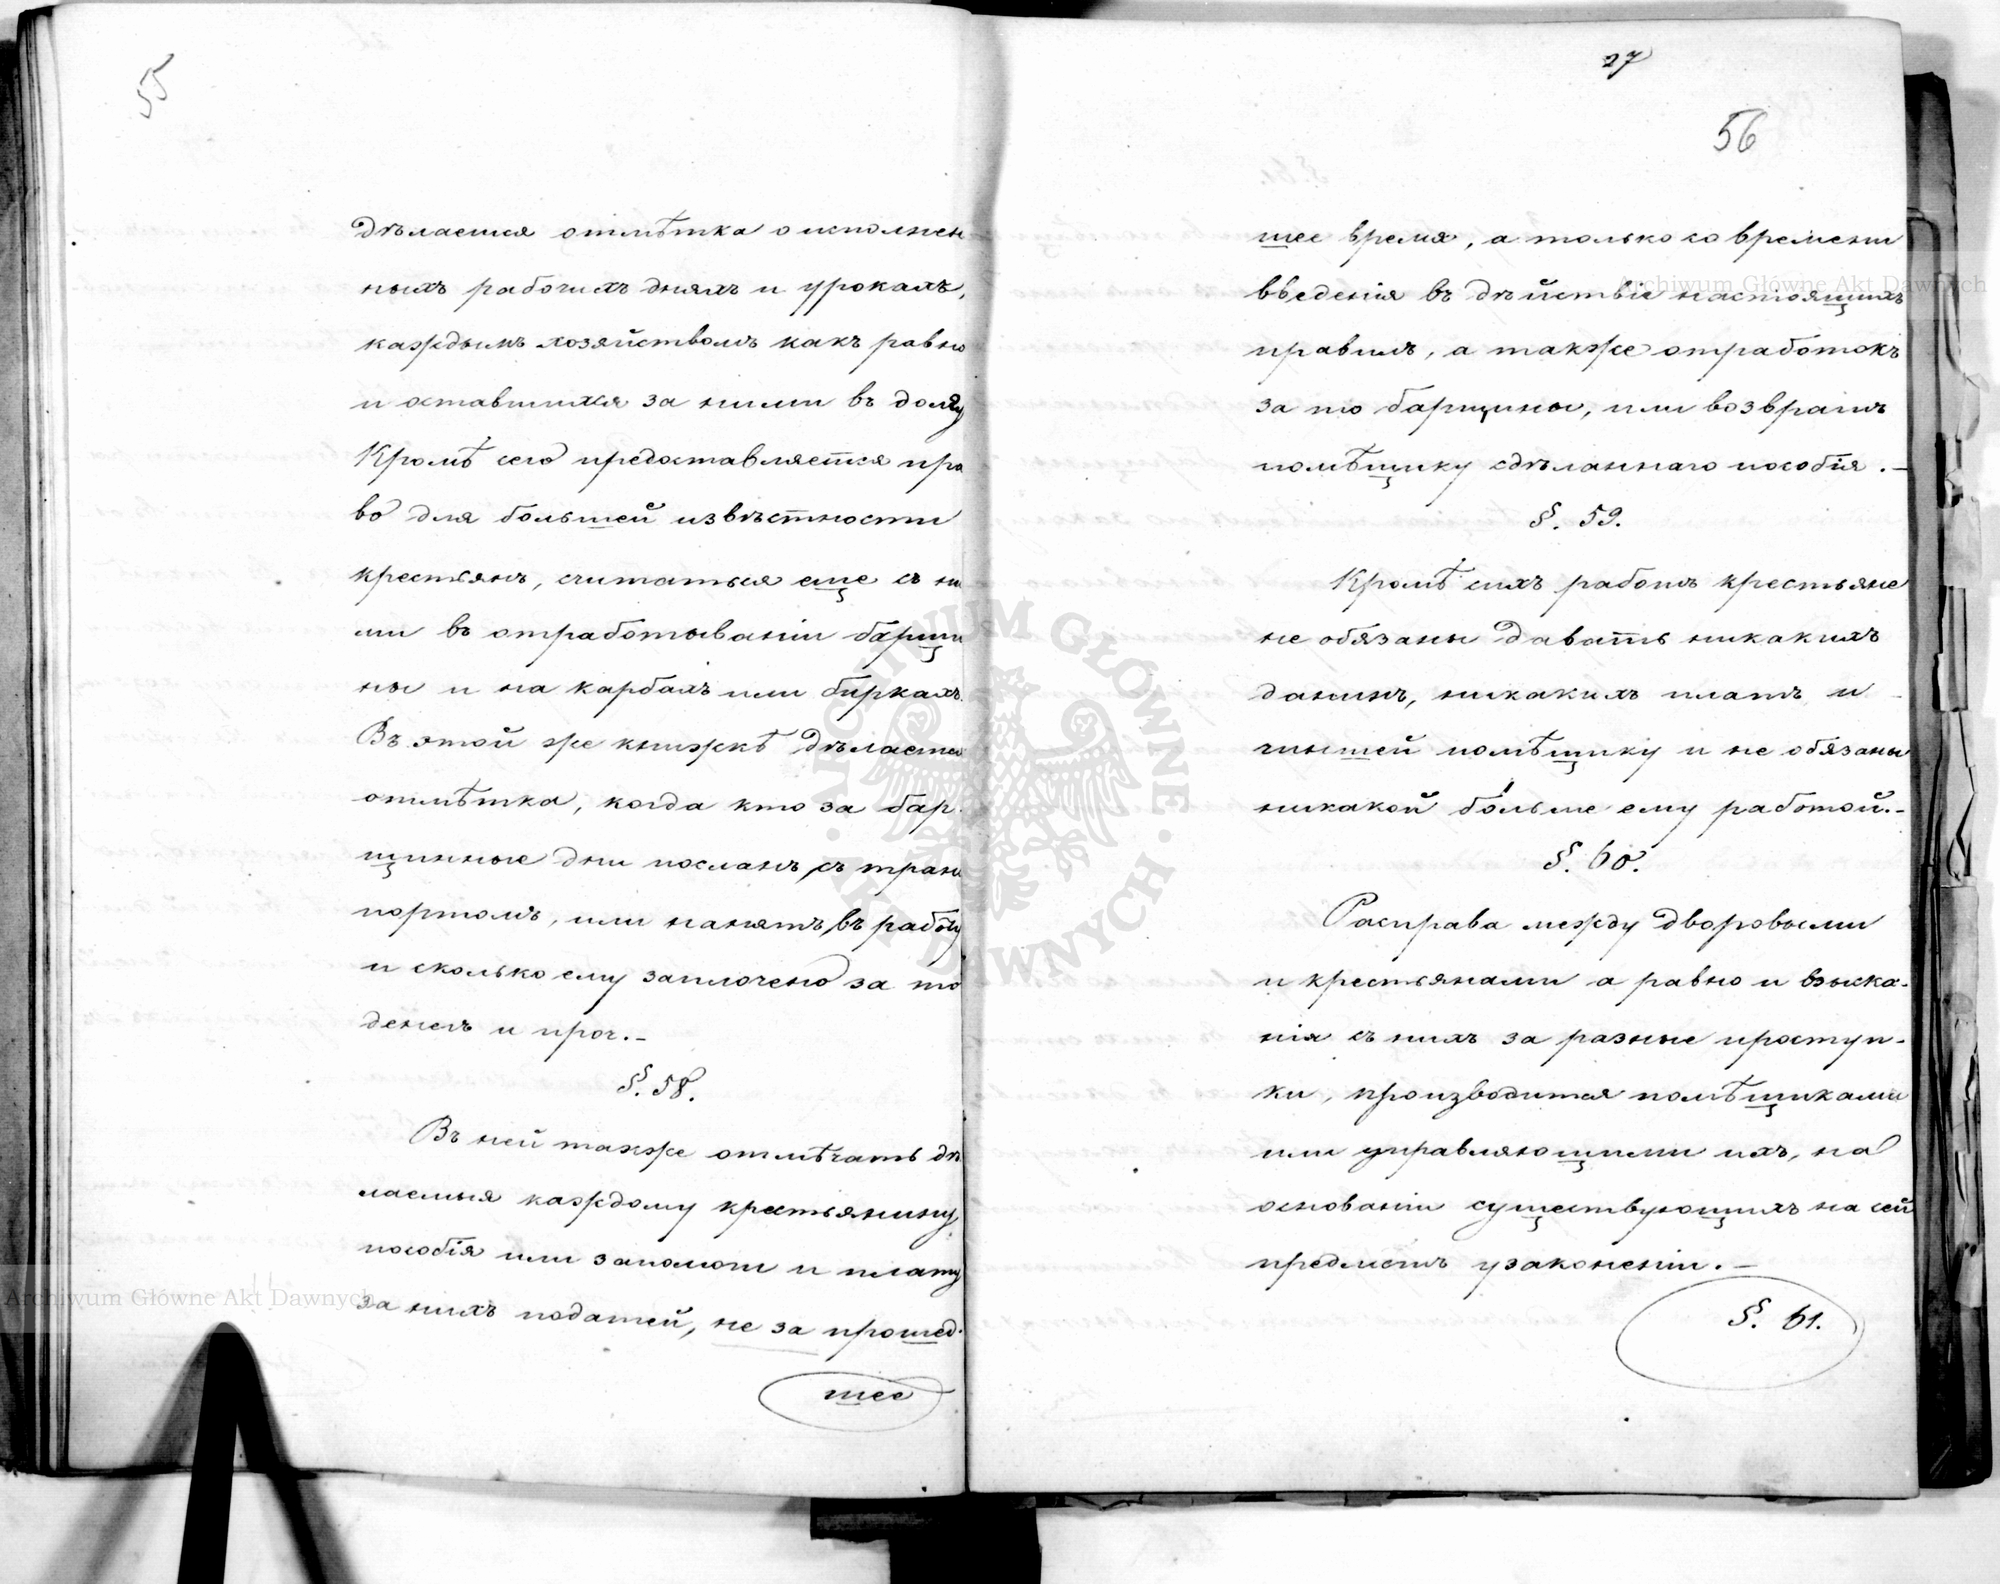 55
дѣлается отмѣтка о исполнен
ныхъ рабочихъ дняхъ и урокахъ,
каждымъ хозяйствомъ какъ равно
и оставшихся за ними въ долгу
Кромѣ сего предоставляется пра
во для большей извѣстности
крестьянъ, считаться еще съ ни
ми въ отработываніи барщи
ны и на карбахъ или биркахъ.
Въ этой же книжкѣ дѣлается
отмѣтка, когда кто за бар.
щинные дни посланъ, съ транс
портомъ, или нанятъ, въ работу
и сколько ему заплочено за то
денегъ и проч.-
§. 58.
Въ ней также отмѣчать дѣ
лаемыя каждому крестьянину
пособія или запомоги и плату
за нихъ податей, не за прошед-
шее
27
56
шее время, а только со времени
введенія въ дѣйствіе настоящихъ
правилъ, а также отработокъ
за то барщины, или возвратъ
помѣщику сдѣланнаго пособія.-
§. 59.
Кромѣ сихъ работъ крестьяне
не обязаны давать никакихъ
данинъ, никакихъ платъ и
чиншей помѣщику и не обязаны
никакой больше ему работой.-
§. 60.
Расправа между дворовыми
и крестьянами а равно и взыска-
нія съ нихъ за разные проступ-
ки, производится помѣщиками
или управляющими ихъ, на
основаніи существующихъ на сей
предметъ узаконеніи.-
§. 61.
Archiwum Główne Akt Dawnych
Archiwum Główne Akt Dawnych
ARCHIWUM GŁÓWNE AKT DAWNYCH